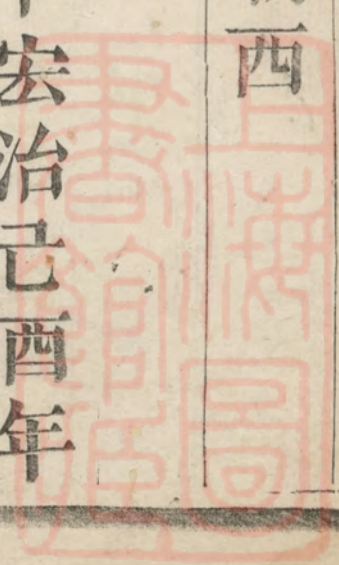 西
宏治己酉年
上海圖
書館藏